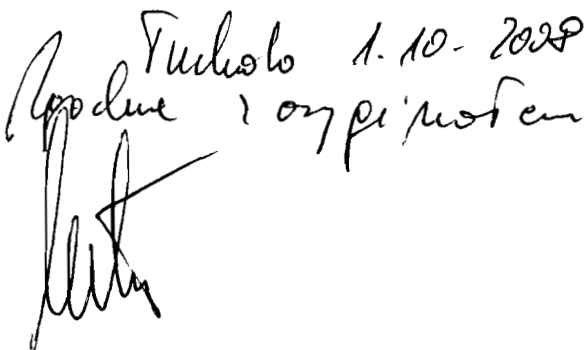 Tuchola 1.10.2008
Zgodne z oryginałem